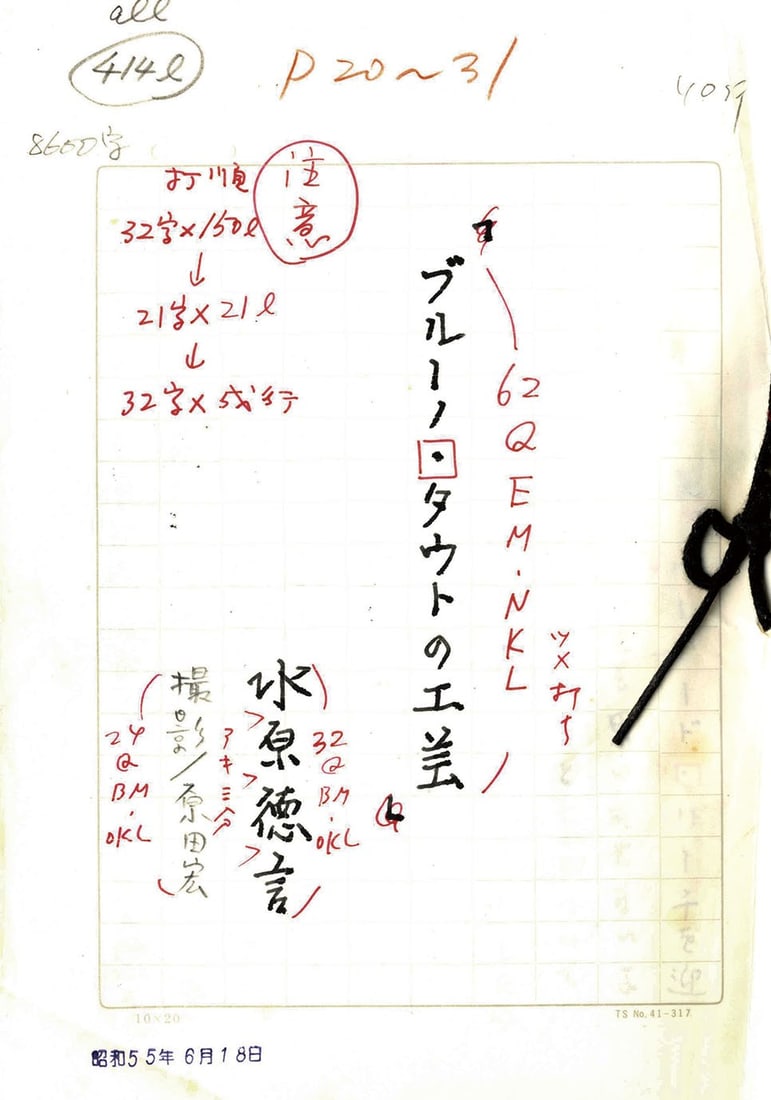 all
414l
P20〜31
40行
8600字
注意
打順
32字×150l
↓
21字×21l
↓
32字×成行
ブルーノ・タウトの工芸
62Q EM・NKL
ツメ打ち
水原徳言
32Q BM・OKL
アキ三分
撮影/原田宏
24Q BM・OKL
10×20
TS No. 41-317
昭和55年6月18日